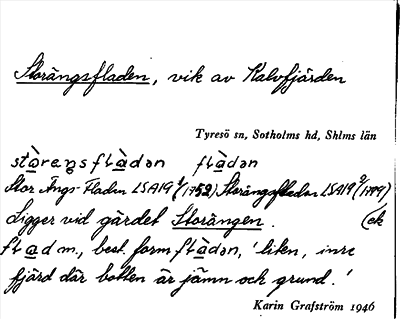 Storängsfladen, vik av Kalvfjärden
Tyresö sn, Sotholms hd, Shlms län
stòreŋsflàdən flàdən
Stor Ängs Fladen LSA19 1/(1752) Storängsfladen LSA19 9/(1799)
Ligger vid gärdet Storängen. (ek
flad m., best. form flàdən, 'liten, inre
fjärd där botten är jämn och grund.'
Karin Grafström 1946